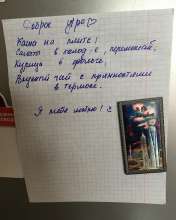 Доброе утро♡
Каша на плите!
Салат в холод-е, перемешай.
Курица в фольге.
Вкусный чай с пряностями
в термосе.
Я тебя люблю! :)